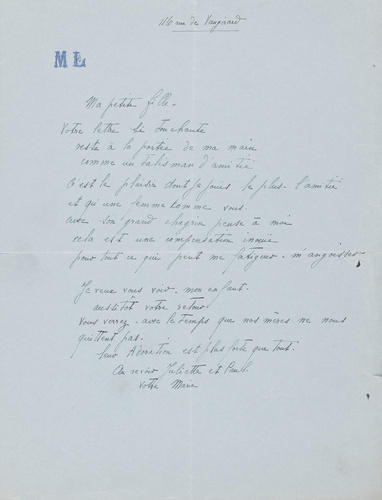 116 rue de Vaugirard
ML
Ma petite fille.
Votre lettre si touchante
reste à la portée de ma main
comme un talisman d'amitié
C'est le plaisir dont je jouis le plus. l'amitié
et qu'une femme comme vous.
avec son grand chagrin pense à moi
cela est une compensation inouie
pour tout ce qui peut me fatiguer. m'angoisser
Je veux vous voir. mon enfant.
aussitôt votre retour.
Vous verrez. avec le temps que nos mères ne nous
quittent pas.
leur Adoration est plus forte que tout.
Au revoir Juliette et Paul.
votre Marie